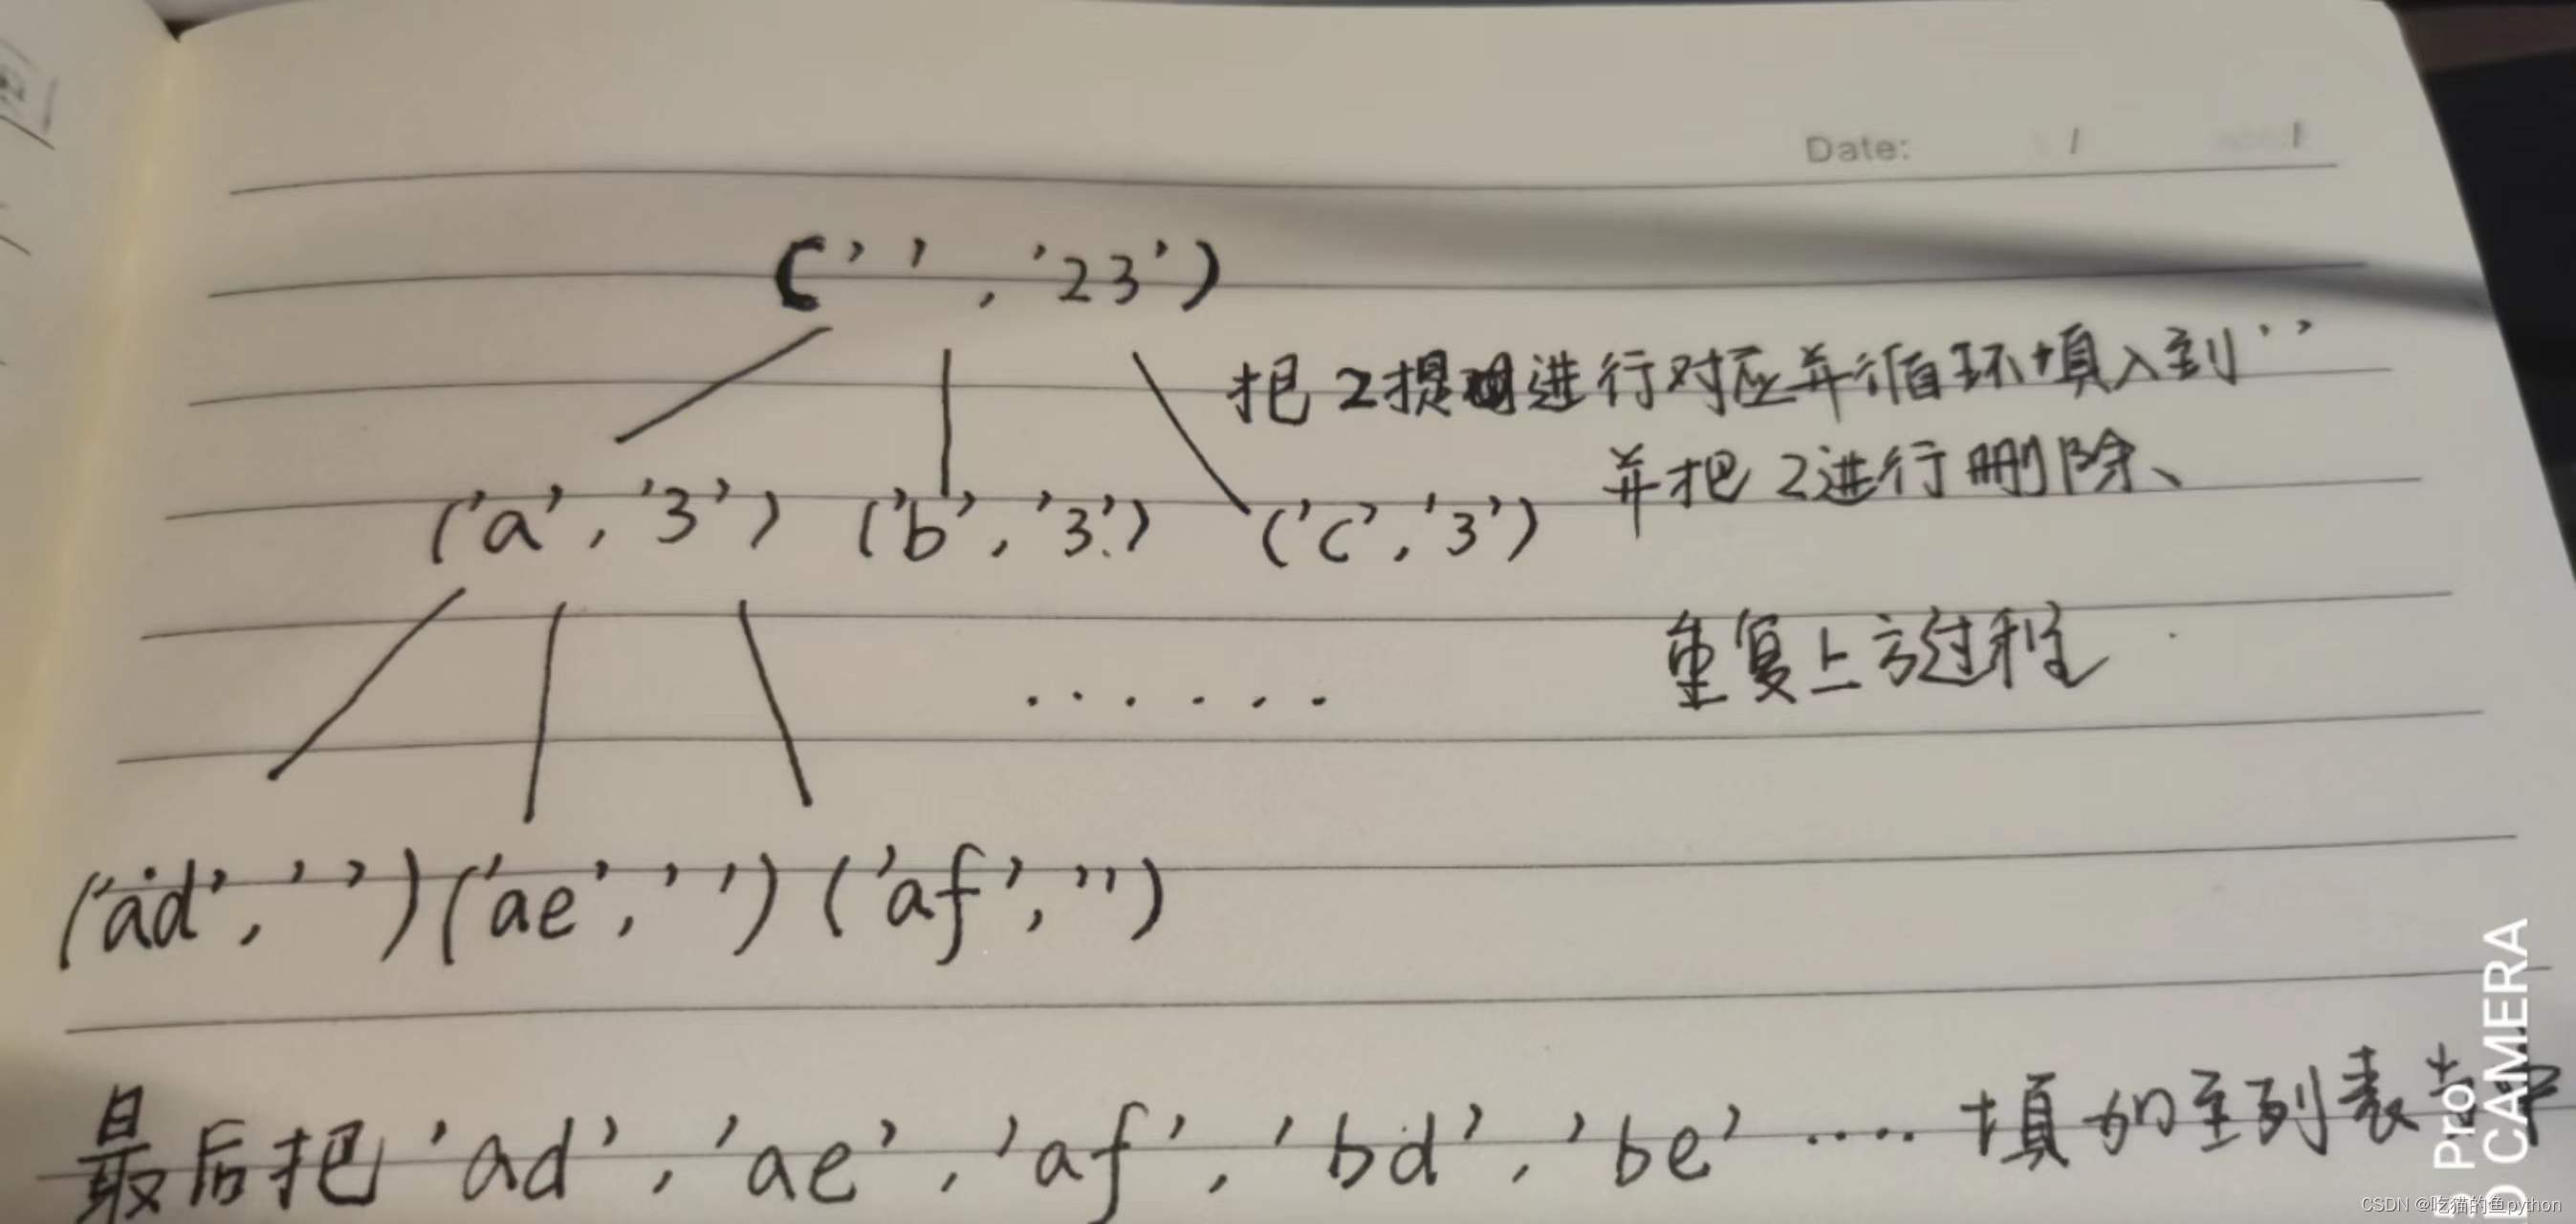 Date: / /
('', '23')
把2提进行对应并循环填入到''
并把2进行删除、
('a', '3') ('b', '3') ('c', '3')
重复上方过程
......
('ad', '') ('ae', '') ('af', '')
最后把'ad', 'ae', 'af', 'bd', 'be' ····填加至列表当中
Pro
D CAMERA
CSDN @吃猫的鱼python